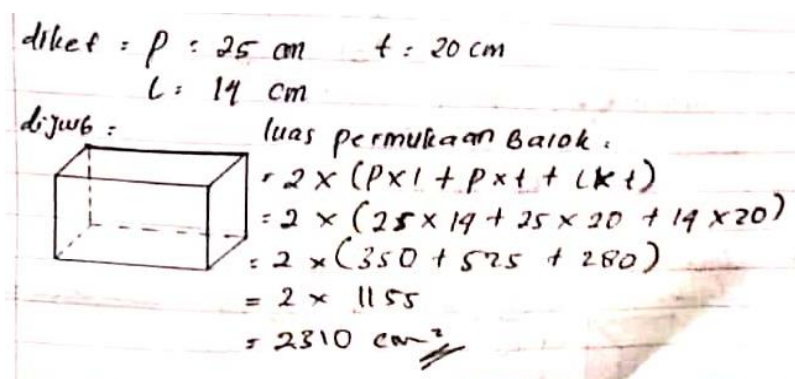 diket : P : 25 cm t : 20 cm
l : 14 cm
dijwb : luas permukaan Balok :
= 2 x (P x l + P x t + l x t)
= 2 x (25 x 14 + 25 x 20 + 14 x 20)
= 2 x (350 + 525 + 280)
= 2 x 1155
= 2310 cm²